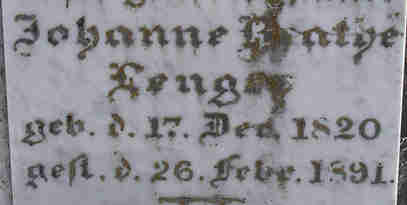 Johanne Bathé
geb. d. 17. Dec. 1820
gest. d. 26. Febr. 1891.